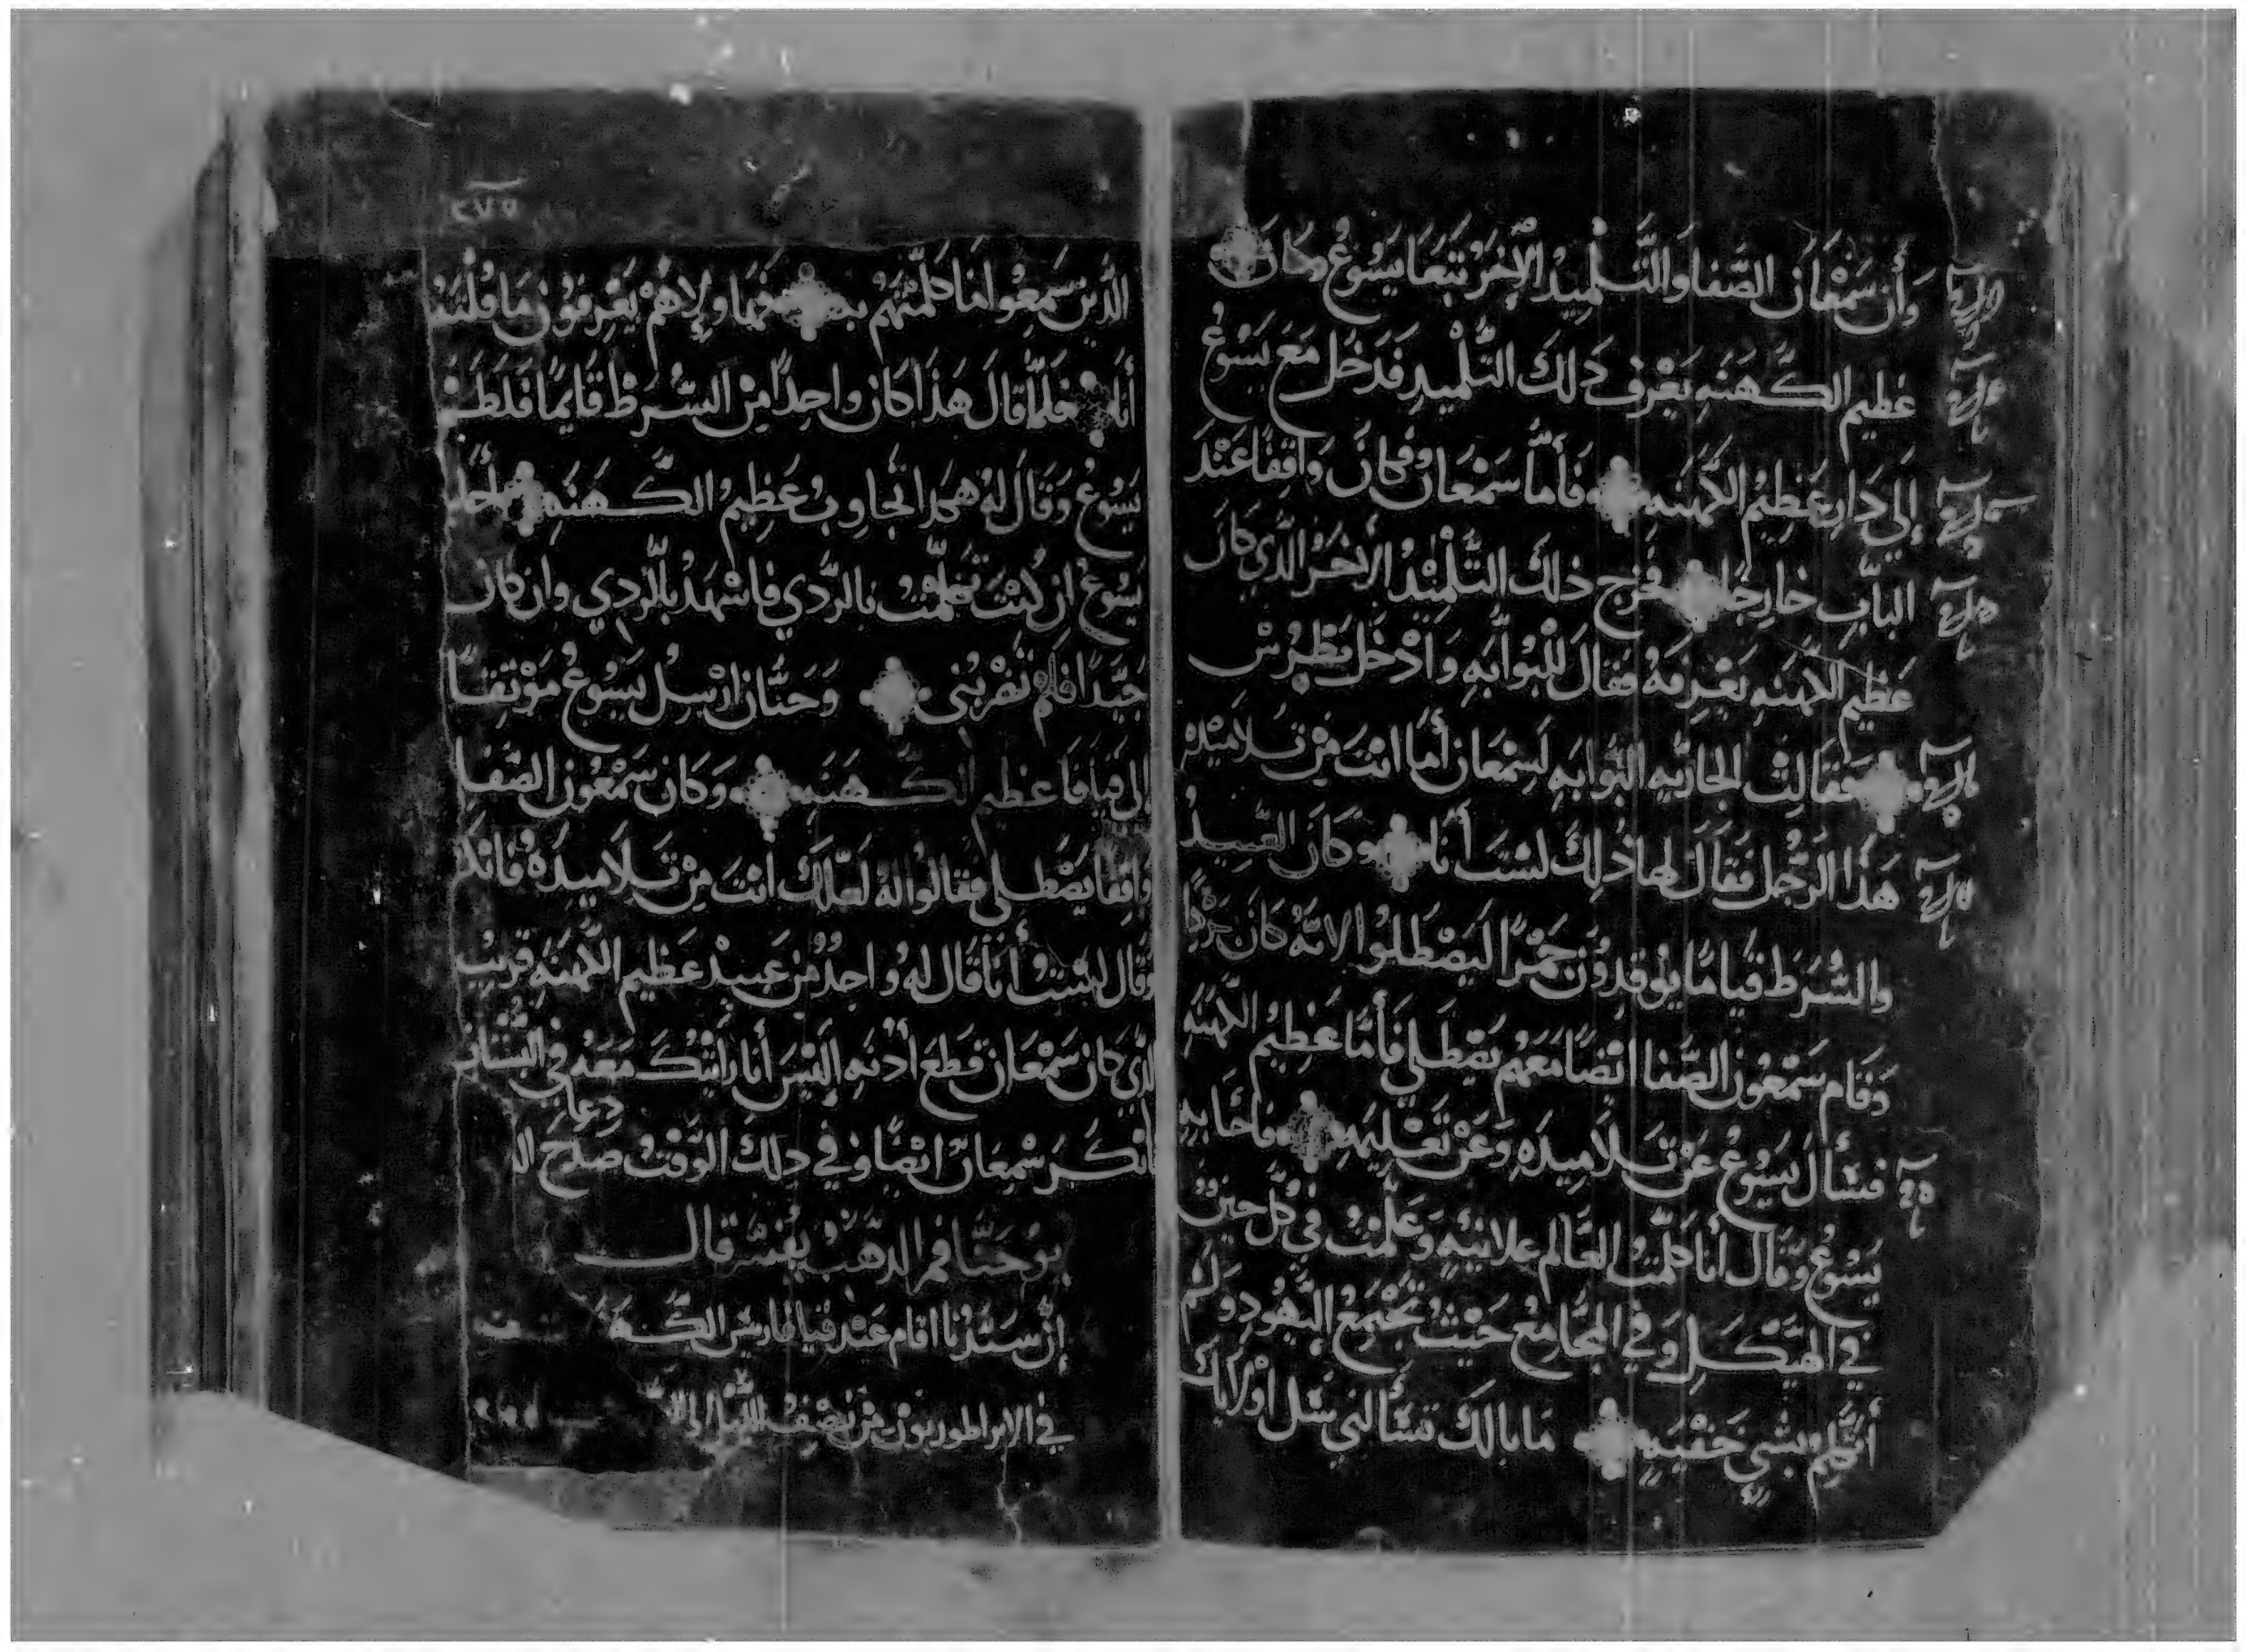 وَأن سَمْعَان الصَّفا والتَّلْمِيدُ الآخَرُ تَبَعَا يَسُوعُ وكَانَ
عَظيم الكَهَنَه يَعْرف دَلكَ التِّلْميدِ فَدَخَل مَعَ يَسُوعُ
إلي دَارِ عَظِيْم الكَهَنَه فَأمَّا سَمْعَان فَكانَ وَاقِفًا عَنْدَ
البَّابِ خارِجًا فخَرج ذلكَ التِّلْمِيْدُ الأخَرُ الَّذي كَانَ
عَظيْم الكَهنَه يَعْرِفهُ فقالَ للبَوَّابَه وَادْخَل بطرُسْ
فَقَالتْ الجاريَه البَوَّابَه لسَمْعَان أمَا انْتَ مِنْ تَلامِيْد
هَذَا الرَّجُل فَقَالَ لهَا ذلِكَ لسْتُ أنَا وكَانَ العَبيدُ
والشُرَط قيَامًا يوقدِوُن جَمْرًا ليَصْطَلوُا لانَّهُ كَانَ بَرْدًا
وَقَام سَمْعُون الصَّفَا ايْضًا مَعَهُم يَصْطَلي فَأمَّا عَظِيْم الكهَنَه
فسَأل يَسُوعُ عَنْ تَلاَمِيدَهِ وَعَنْ تَعْليَمِه فأجَابهِ
يَسُوعُ وَقَال أنَا كلَّمْتُ العَالم علانيَه وَعَلَّمْتُ في كُل حِين
في الهَيْكَلِ وَفي المجَامِعْ حَيْثُ تَجْتَمِعُ اليَهُودِ وَلَمْ
أتَكلم بشيٍ خَفْيَه مَا بالكَ تسْألنِي سَل اوْلايكَ
٢٧٥
الَّذين سَمِعُوا مَا كلَّمْتَهُم به فهَا ولاهُمْ يَعْرِفوُن مَا قُلْتُهُ
أنَا فلمَّا قالَ هَذا كَان واحِدًا مِنْ الشُّرَطْ قَايمًا فَلَطَمَ
يَسُوعُ وَقَالَ لهُ هكذا تجَاوِبُ عَظِيمُ الكَهَنَه أجَابَ
يَسُوعُ ان كُنْتُ تَكلمتُ بالرَّدي فاشْهَدْ بالرَّدي وان كان
جَيَّدًا فلم تَضْرِبُني وَحَنَّان ارْسِلُ يَسُوعُ مَوْثَقًا
إلى قيَافَا عَظيم الكَهَنَه وَكَان سَمْعُون الصَّفا
وَاقفا يَصْطَلي فقالوُا لهُ لعَلَّكَ أنْتَ مِنْ تَلاَميدَهُ فانكر
وَقَال لسْتُ أنَا قَال لهُ واحِدُ مِن عَبيدْ عَظيم الكهَنَه قريبُ
الَّذي كَان سَمْعَان قطعَ أدنَه ألَيْسَ أنَا رَأيْتُكَ مَعَهُ في البُسْتَان
فانكَرَ سْمعَانْ ايْضًا وَفي دلكَ الوَقْتُ صَاحَ الد
دعا
يوُحَنَّا فم الدَّهَبْ يفسّر قَال
إنَّ سَيّدُنا اقام عَنْد قيَافا ريس الكَهَنَه
في الابراطوريون مِنْ نصْفِ الليْل الي